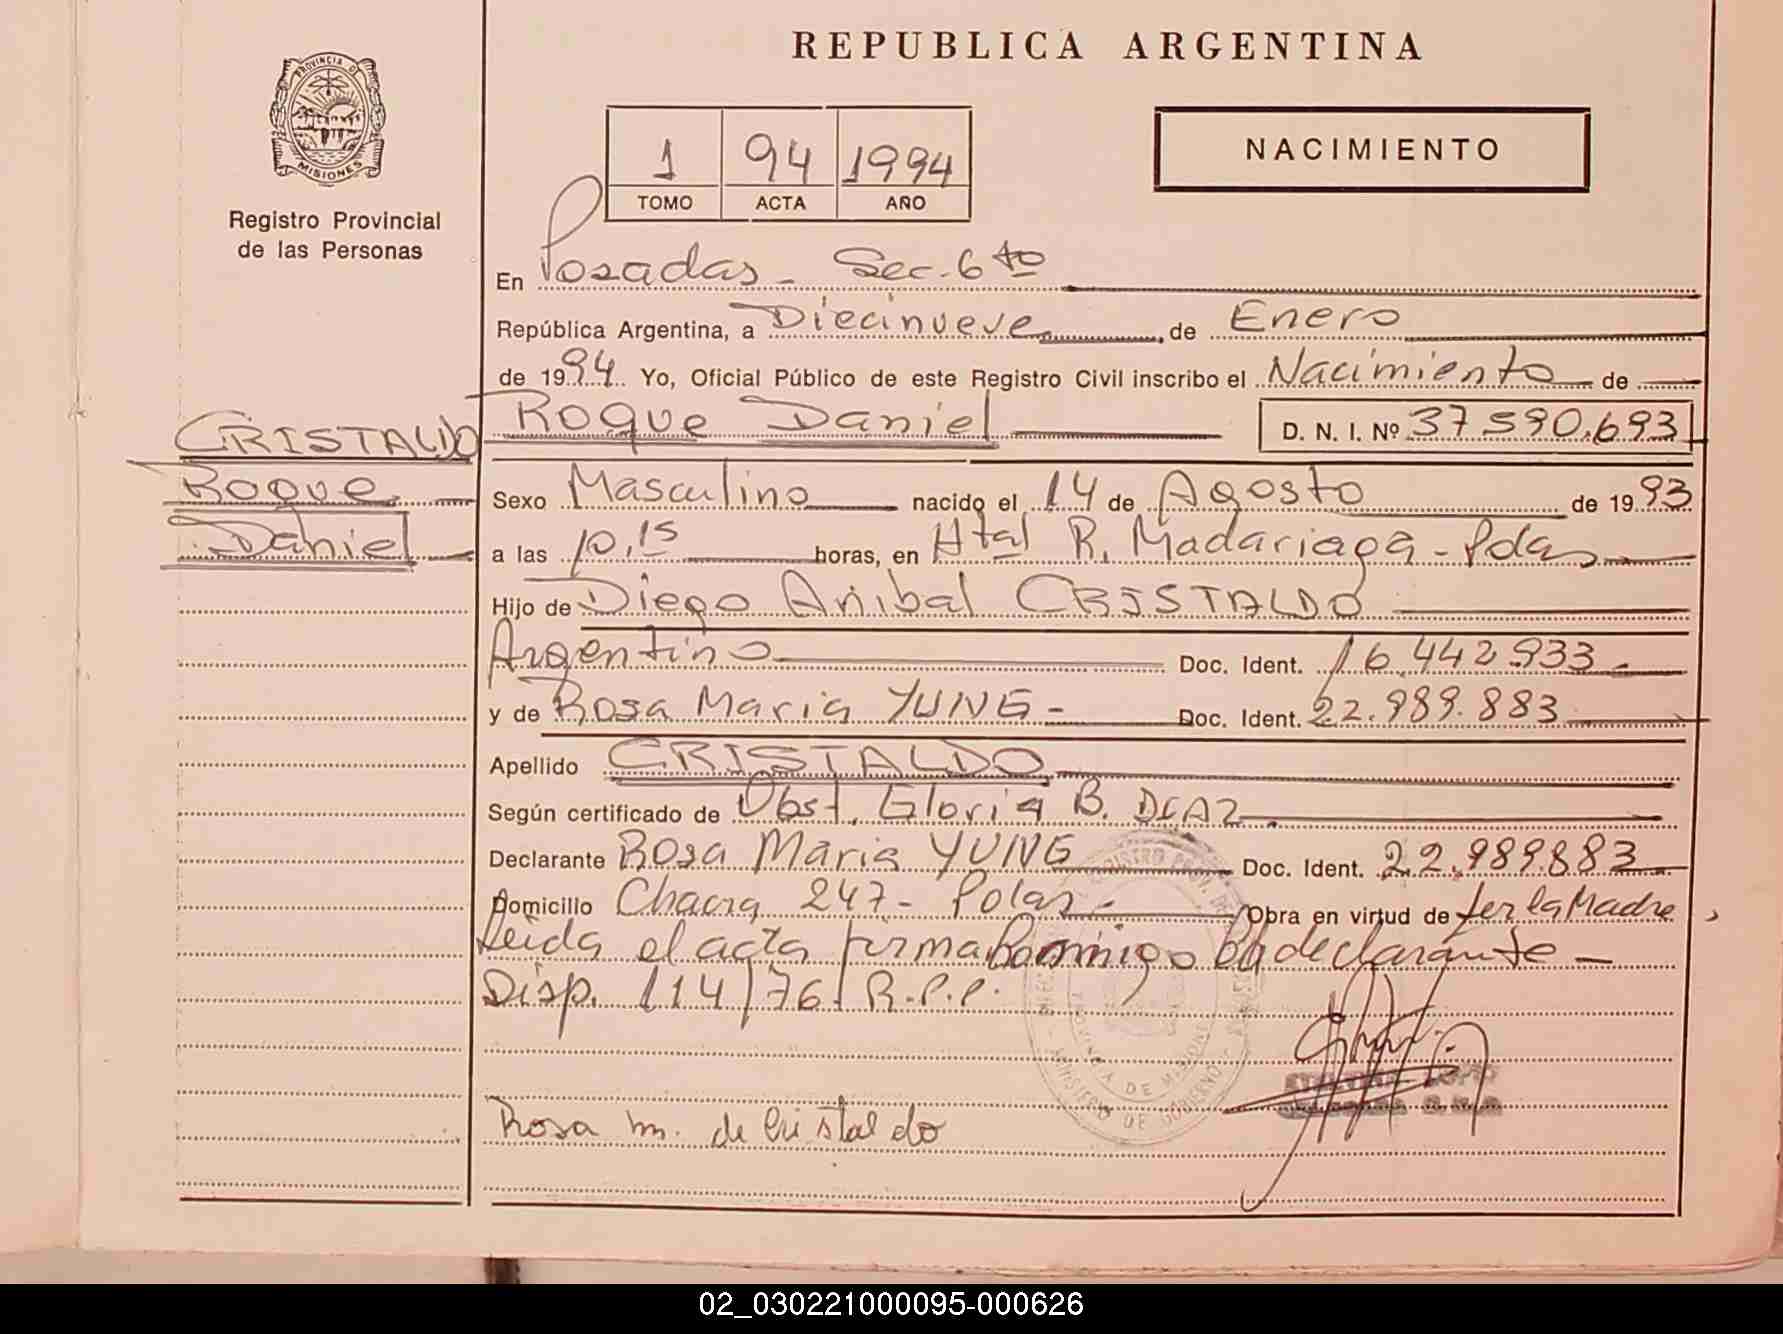 REPUBLICA ARGENTINA
PROVINCIA DE
MISIONES
Registro Provincial
de las Personas
1 94 1994
TOMO ACTA AÑO
NACIMIENTO
En Posadas - Sec. 6to
República Argentina, a Diecinueve de Enero
de 1994 Yo, Oficial Público de este Registro Civil inscribo el Nacimiento de
CRISTALDO
Roque
Daniel
Roque Daniel D. N. I. Nº 37.590.693
Sexo Masculino nacido el 14 de Agosto de 1993
a las 10,15 horas, en Htal R. Madariaga - Pdas
Hijo de Diego Anibal CRISTALDO
Argentino Doc. Ident. 16.442.933
y de Rosa Maria YUNG - Doc. Ident. 22.989.883
Apellido CRISTALDO
Según certificado de Obst. Gloria B. DIAZ
Declarante Rosa Maria YUNG Doc. Ident. 22.989.883
Domicilio Chacra 247 - Pdas - Obra en virtud de ser la Madre,
Leida el acta firma conmigo la declarante -
Disp. 114/76 R.P.P.
PROVINCIA DE MISIONES
MINISTERIO DE GOBIERNO
Rosa m. de Cristaldo
02_030221000095-000626